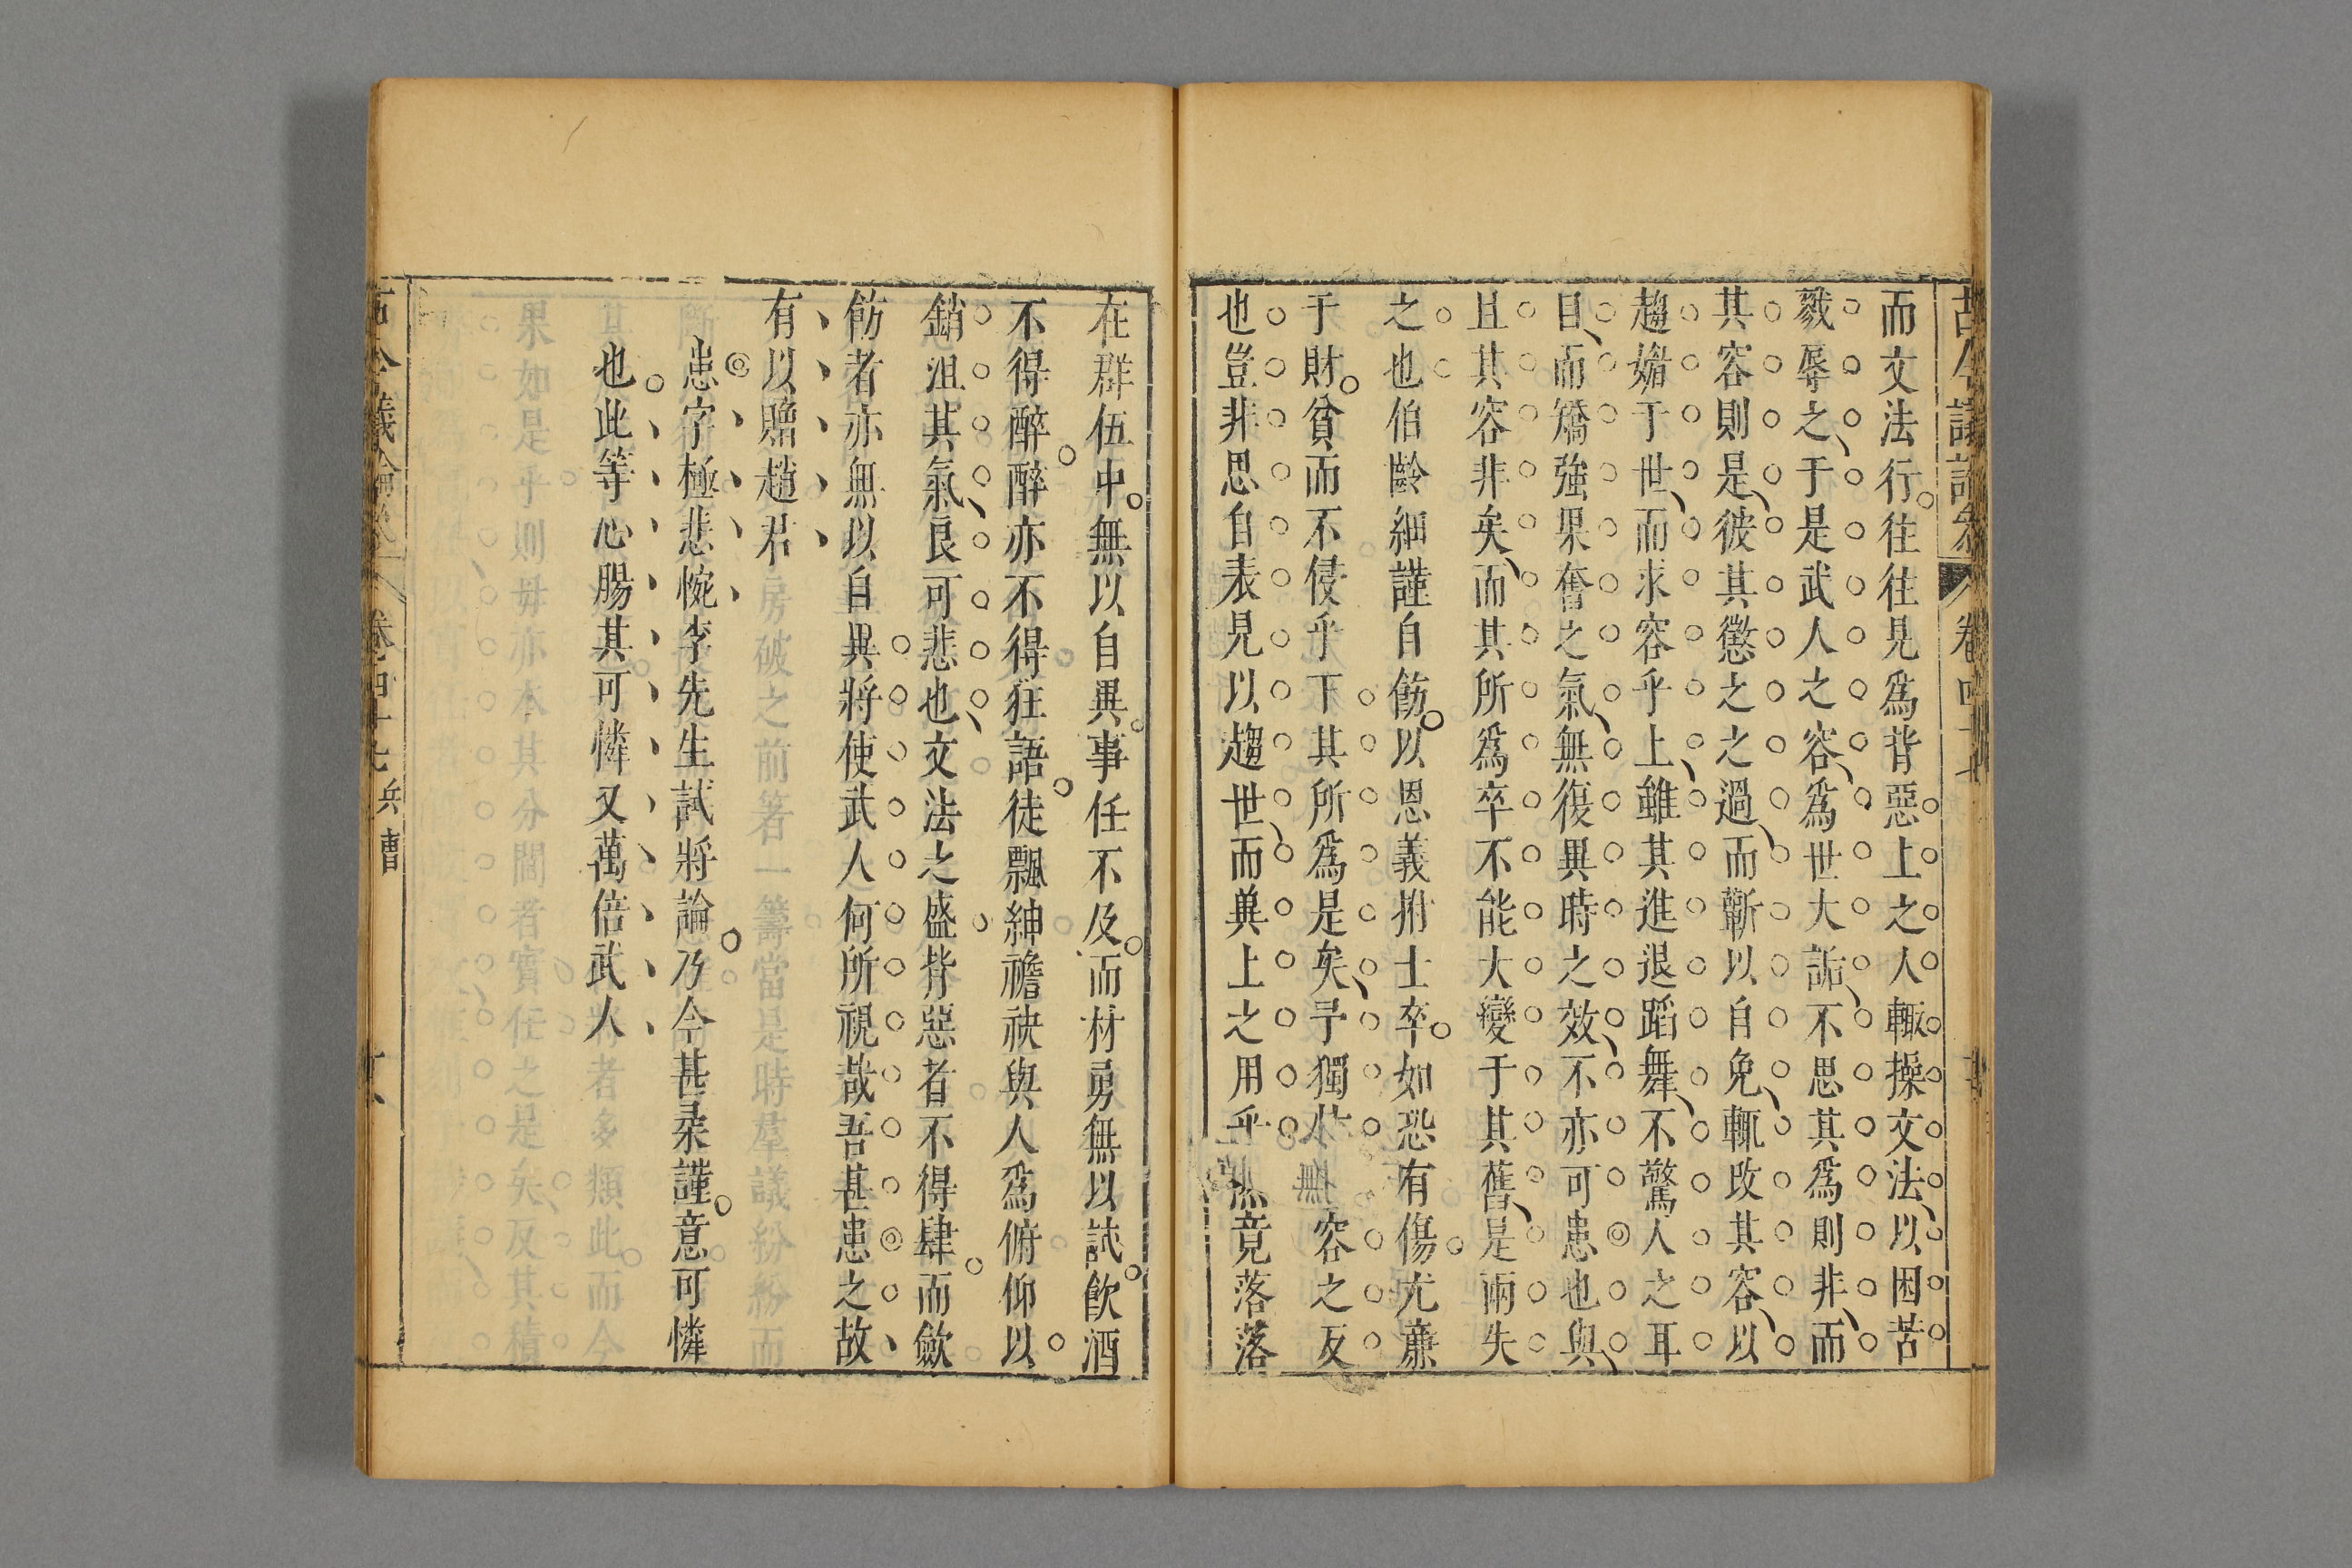 古今議論參 卷四十七
而文法行往往見爲背惡上之人輙操文法以困苦
戮辱之于是武人之容爲世大詬不思其爲則非而
其容則是彼其懲之之過而蘄以自免輒改其容以
趨媚于世而求容乎上雖其進退蹈舞不驚人之耳
目而矯強果奮之氣無復異時之效不亦可患也與
且其容非矣而其所爲卒不能大變于其舊是兩失
之也伯齡細謹自飭以恩義拊士卒如恐有傷尤廉
于財貧而不侵乎下其所爲是矣予獨 容之反
也豈非思自表見以趨世而兾上之用乎 竟落落
在群伍中無以自異事任不及而材勇無以試飲酒
不得醉醉亦不得狂語徒飄紳襜袂與人爲俯仰以
銷沮其氣良可悲也文法之盛背惡者不得肆而斂
飭者亦無以自異將使武人何所視哉吾甚患之故
有以贈趙君
患字極悲惋李先生試將論乃今甚柔謹意可憐
也此等心腸其可憐又萬倍武人
古今議論參 卷四十七 兵曹